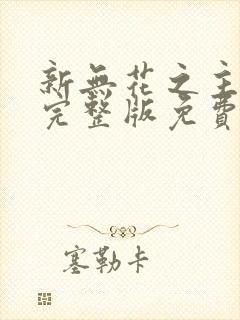 新無花之主
完整版免費
塞勒卡